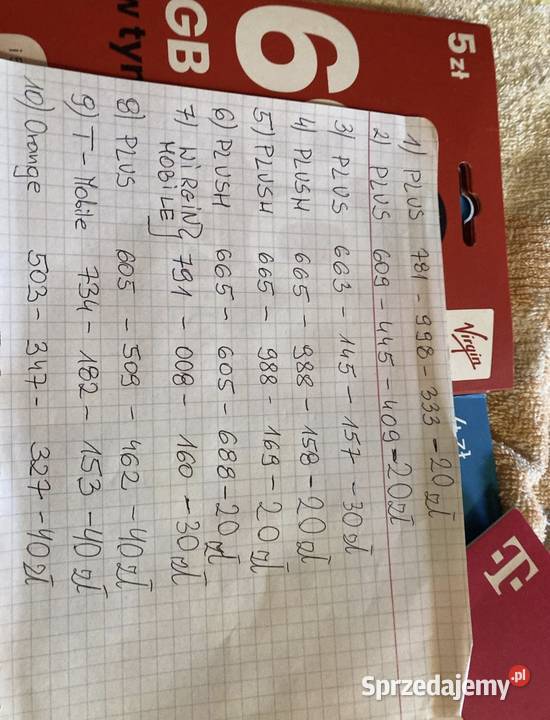 1) PLUS 781-998-333-20zł
2) PLUS 609-445-409-20zł
3) PLUS 663-145-157-30zł
4) PLUSH 665-988-158-20zł
5) PLUSH 665-988-169-20zł
6) PLUSH 665-605-688-20zł
7) WIRGIN
MOBILE 791-008-160-30zł
8) PLUS 605-509-462-40zł
9) T-Mobile 734-182-153-40zł
10) Orange 503-347-327-40zł
5 zł
6
GB
w tym
Virgin
T
Sprzedajemy.pl